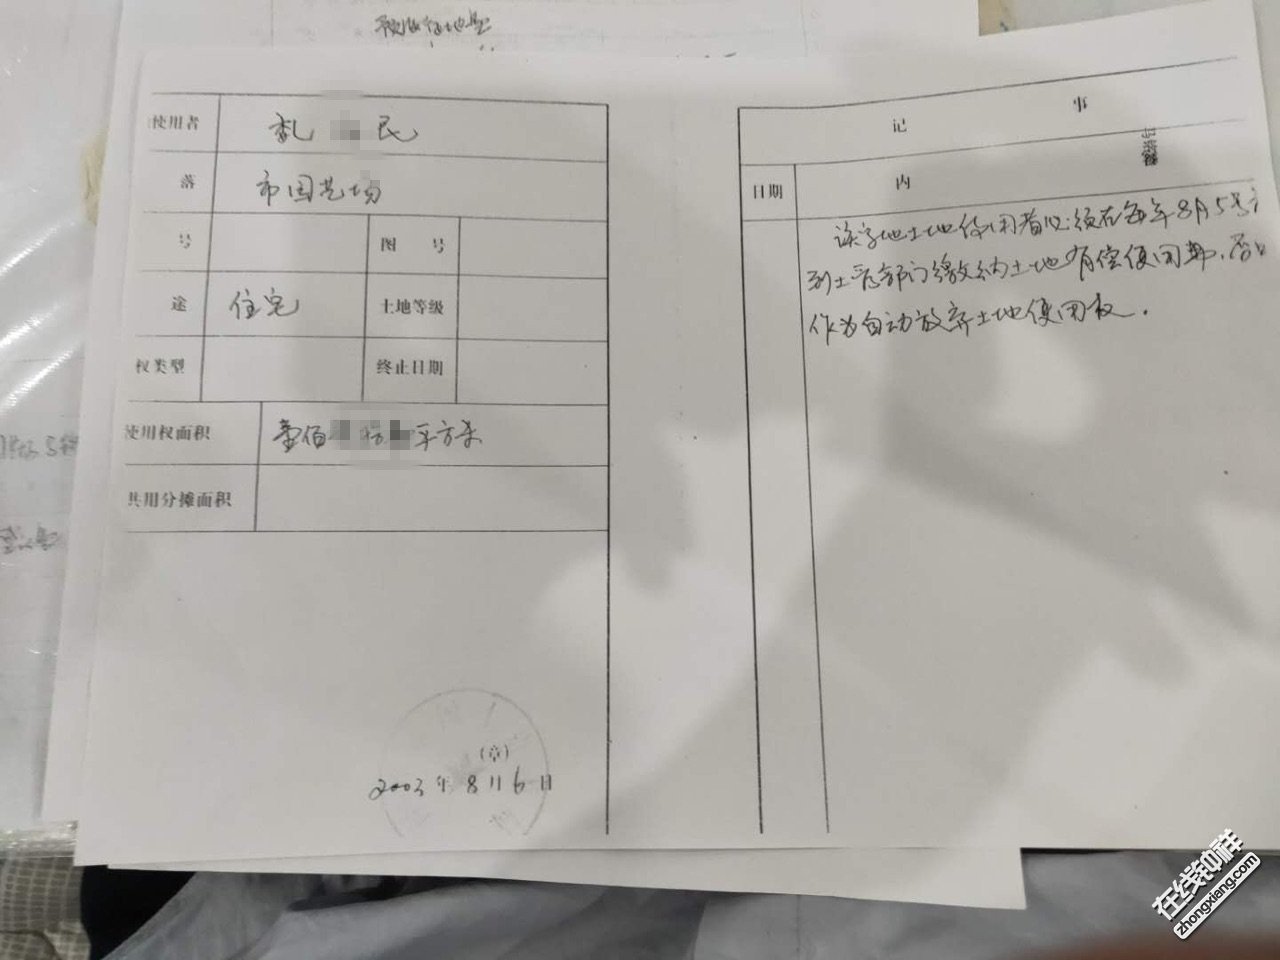 使用者 民
落 市园艺场
号 图 号
途 住宅 土地等级
权类型 终止日期
使用权面积 壹佰 拾 平方米
共用分摊面积
(章)
2003年8月6日
记 事
日期 内
该宗地土地使用者必须在每年8月5号
到土管部门缴纳土地有偿使用费,否
作为自动放弃土地使用权.
在线钟祥
zhongxiang.com